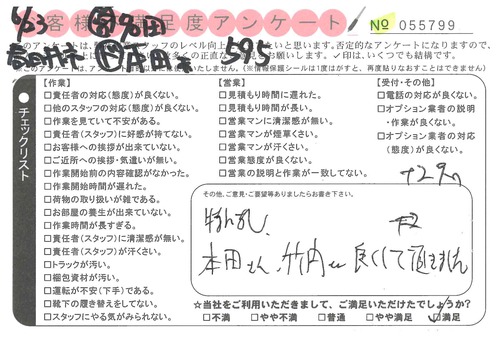 お客様満足度アンケート
No 055799
595
チェックリスト
【作業】
□責任者の対応(態度)が良くない。
□他のスタッフの対応(態度)が良くない。
□作業を見ていて不安がある。
□責任者(スタッフ)に好感が持てない。
□お客様への挨拶が出来ていない。
□ご近所への挨拶・気遣いが無い。
□作業開始前の内容確認がなかった。
□作業開始時間が遅れた。
□荷物の取り扱いが雑である。
□お部屋の養生が出来ていない。
□作業時間が長すぎる。
□責任者(スタッフ)に清潔感が無い。
□責任者(スタッフ)が汗くさい。
□トラックが汚い。
□梱包資材が汚い。
□運転が不安(下手)である。
□靴下の履き替えをしてない。
□スタッフにやる気がみられない。
【営業】
□見積もり時間に遅れた。
□見積もり時間が長い。
□営業マンに清潔感が無い。
□営業マンが煙草くさい。
□営業マンが汗くさい。
□営業態度が良くない。
□営業の説明と作業が一致してない。
【受付・その他】
□電話の対応が良くない。
□オプション業者の説明
・作業が良くない。
□オプション業者の対応
(態度)が良くない。
その他、ご意見・ご要望等ありましたらお書き下さい。
特になし、
本田さん、竹内さん 良くして頂きました
☆当社をご利用いただきまして、ご満足いただけたでしょうか?
□不満 □やや不満 □普通 □やや満足 ☑満足